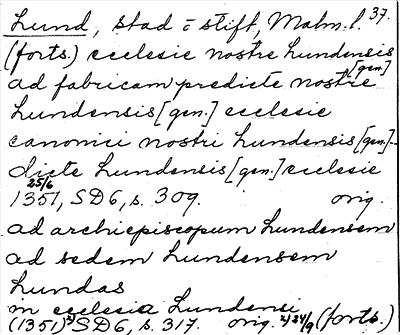 Lund, stad o stift, Malm. l. 37.
(forts.) ecclesie nostre Lundensis [gen]
ad fabricam predicte nostre
Lundensis [gen.] ecclesie
canonici nostri Lundensis [gen.] -
dicte Lundensis [gen.] ecclesie
1351 25/6, SD 6, s. 309. orig.
ad archiepiscopum Lundensem
ad sedem Lundensem
Lundas
in ecclesia Lundensi
(1351) SD 6, s. 317. orig. 24/9 (forts.)